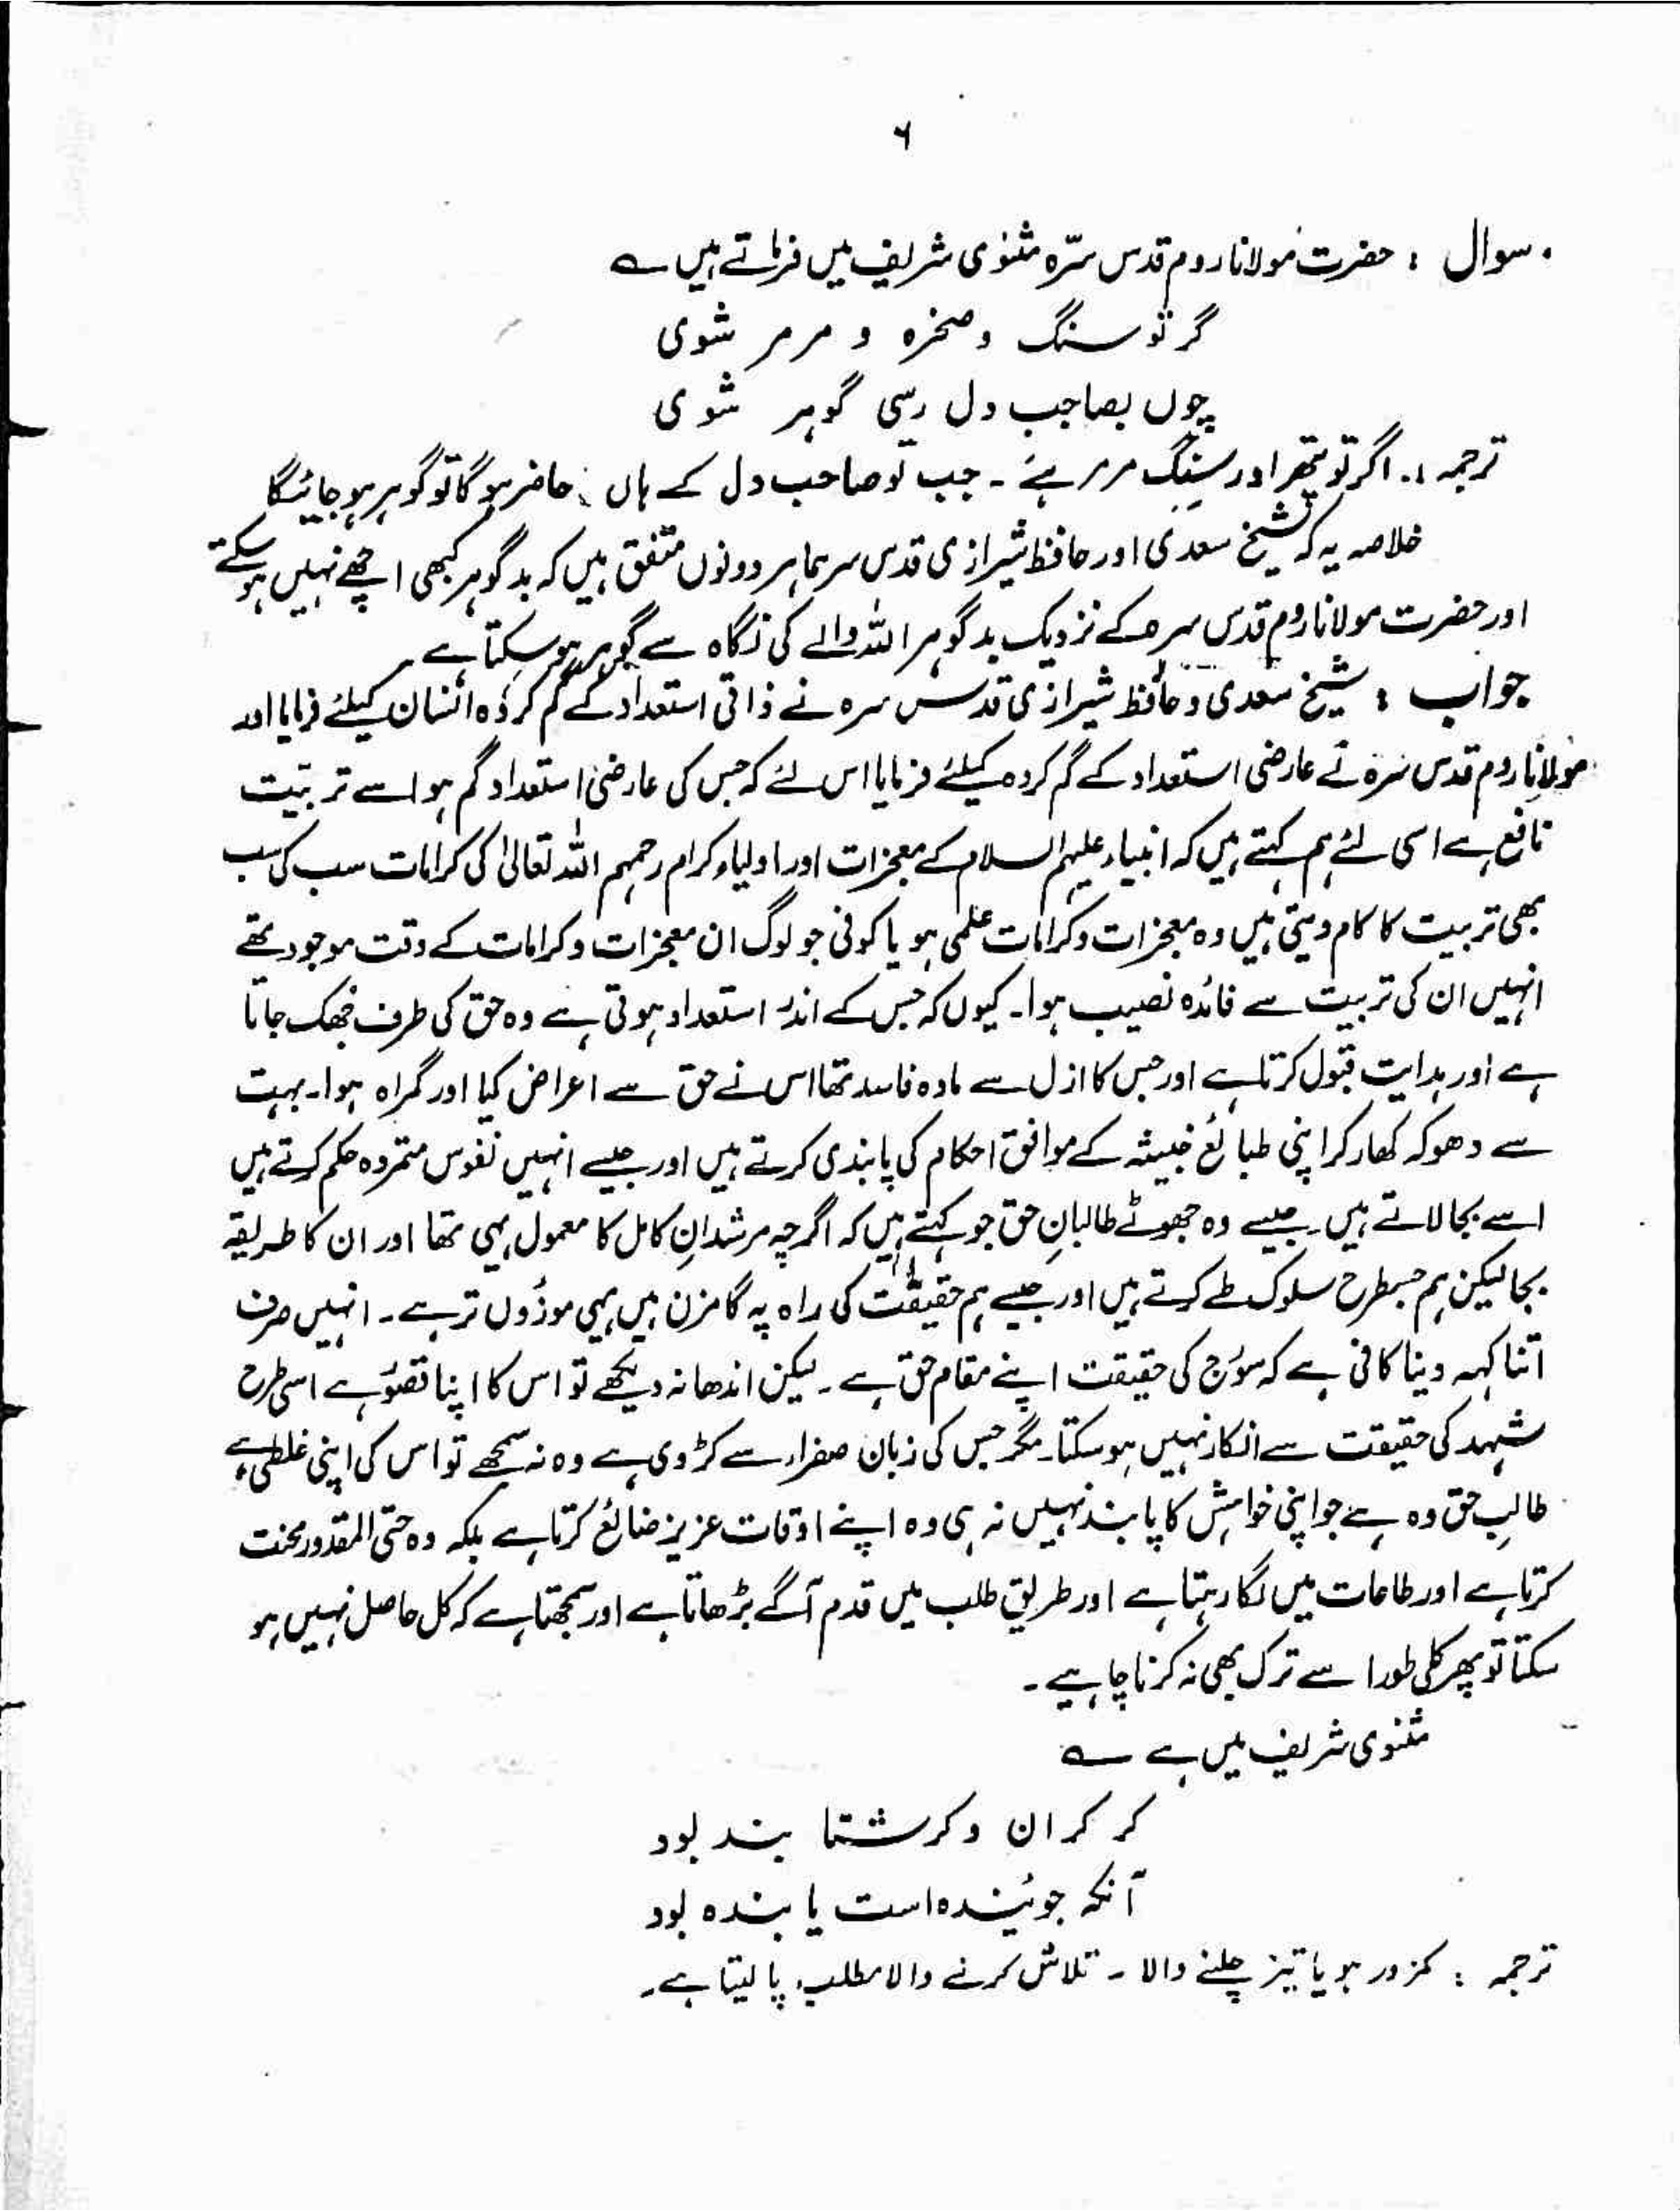 ۶
سوال : حضرت مولانا روم قدس سرّہ مثنوی شریف میں فرماتے ہیں ؎
گر تو سنگ و صخرہ و مرمر شوی
چوں بصاحب دل رسی گوہر شوی
ترجمہ :. اگر تو پتھر اور سنگِ مرمر ہے ۔ جب تو صاحب دل کے ہاں حاضر ہو گا تو گوہر ہو جائیگا
خلاصہ یہ کہ شیخ سعدی اور حافظ شیرازی قدس سرہما ہر دونوں متفق ہیں کہ بد گوہر کبھی اچھے نہیں ہو سکتے
اور حضرت مولانا روم قدس سرہ کے نزدیک بد گوہر اللہ والے کی نگاہ سے گوہر ہو سکتا ہے ۔
جواب : شیخ سعدی و حافظ شیرازی قدس سرہ نے ذاتی استعداد کے گم کردہ انسان کیلئے فرمایا اور
مولانا روم قدس سرہ نے عارضی استعداد کے گم کردہ کیلئے فرمایا اس لئے کہ جس کی عارضی استعداد گم ہو اسے تربیت
نافع ہے اسی لئے ہم کہتے ہیں کہ انبیاء علیہم السلام کے معجزات اور اولیاء کرام رحمہم اللہ تعالیٰ کی کرامات سب کی سب
بھی تربیت کا کام دیتی ہیں وہ معجزات و کرامات علمی ہو یا کونی جو لوگ ان معجزات و کرامات کے وقت موجود تھے
انہیں ان کی تربیت سے فائدہ نصیب ہوا۔ کیوں کہ جس کے اندر استعداد ہوتی ہے وہ حق کی طرف جھک جاتا
ہے اور ہدایت قبول کرتا ہے اور جس کا ازل سے مادہ فاسد تھا اس نے حق سے اعراض کیا اور گمراہ ہوا۔ بہت
سے دھوکہ کھار کر اپنی طبائع خبیثہ کے موافق احکام کی پابندی کرتے ہیں اور جیسے انہیں نفوس متمردہ حکم کرتے ہیں
اسے بجا لاتے ہیں۔ جیسے وہ جھوٹے طالبانِ حق جو کہتے ہیں کہ اگرچہ مرشدانِ کامل کا معمول یہی تھا اور ان کا طریقہ
بجا لیکن ہم جسطرح سلوک طے کرتے ہیں اور جیسے ہم حقیقت کی راہ پہ گامزن ہیں یہی موزوں تر ہے ۔ انہیں صرف
اتنا کہہ دینا کافی ہے کہ سورج کی حقیقت اپنے مقام حق ہے ۔ لیکن اندھا نہ دیکھے تو اس کا اپنا قصور ہے اسی طرح
شہد کی حقیقت سے انکار نہیں ہو سکتا۔ مگر جس کی زبان صفراء سے کڑوی ہے وہ نہ سمجھے تو اس کی اپنی غلطی ہے
طالبِ حق وہ ہے جو اپنی خواہش کا پابند نہیں نہ ہی وہ اپنے اوقات عزیز ضائع کرتا ہے بلکہ وہ حتی المقدور محنت
کرتا ہے اور طاعات میں لگا رہتا ہے اور طریق طلب میں قدم آگے بڑھاتا ہے اور سمجھتا ہے کہ کل حاصل نہیں ہو
سکتا تو پھر کلی طور اسے ترک بھی نہ کرنا چاہیے ۔
مثنوی شریف میں ہے ؎
گر گران و گر شتا بند بود
آنکہ جوئیندہ است یا بندہ بود
ترجمہ : کمزور ہو یا تیز چلنے والا ۔ تلاش کرنے والا مطلب پا لیتا ہے۔